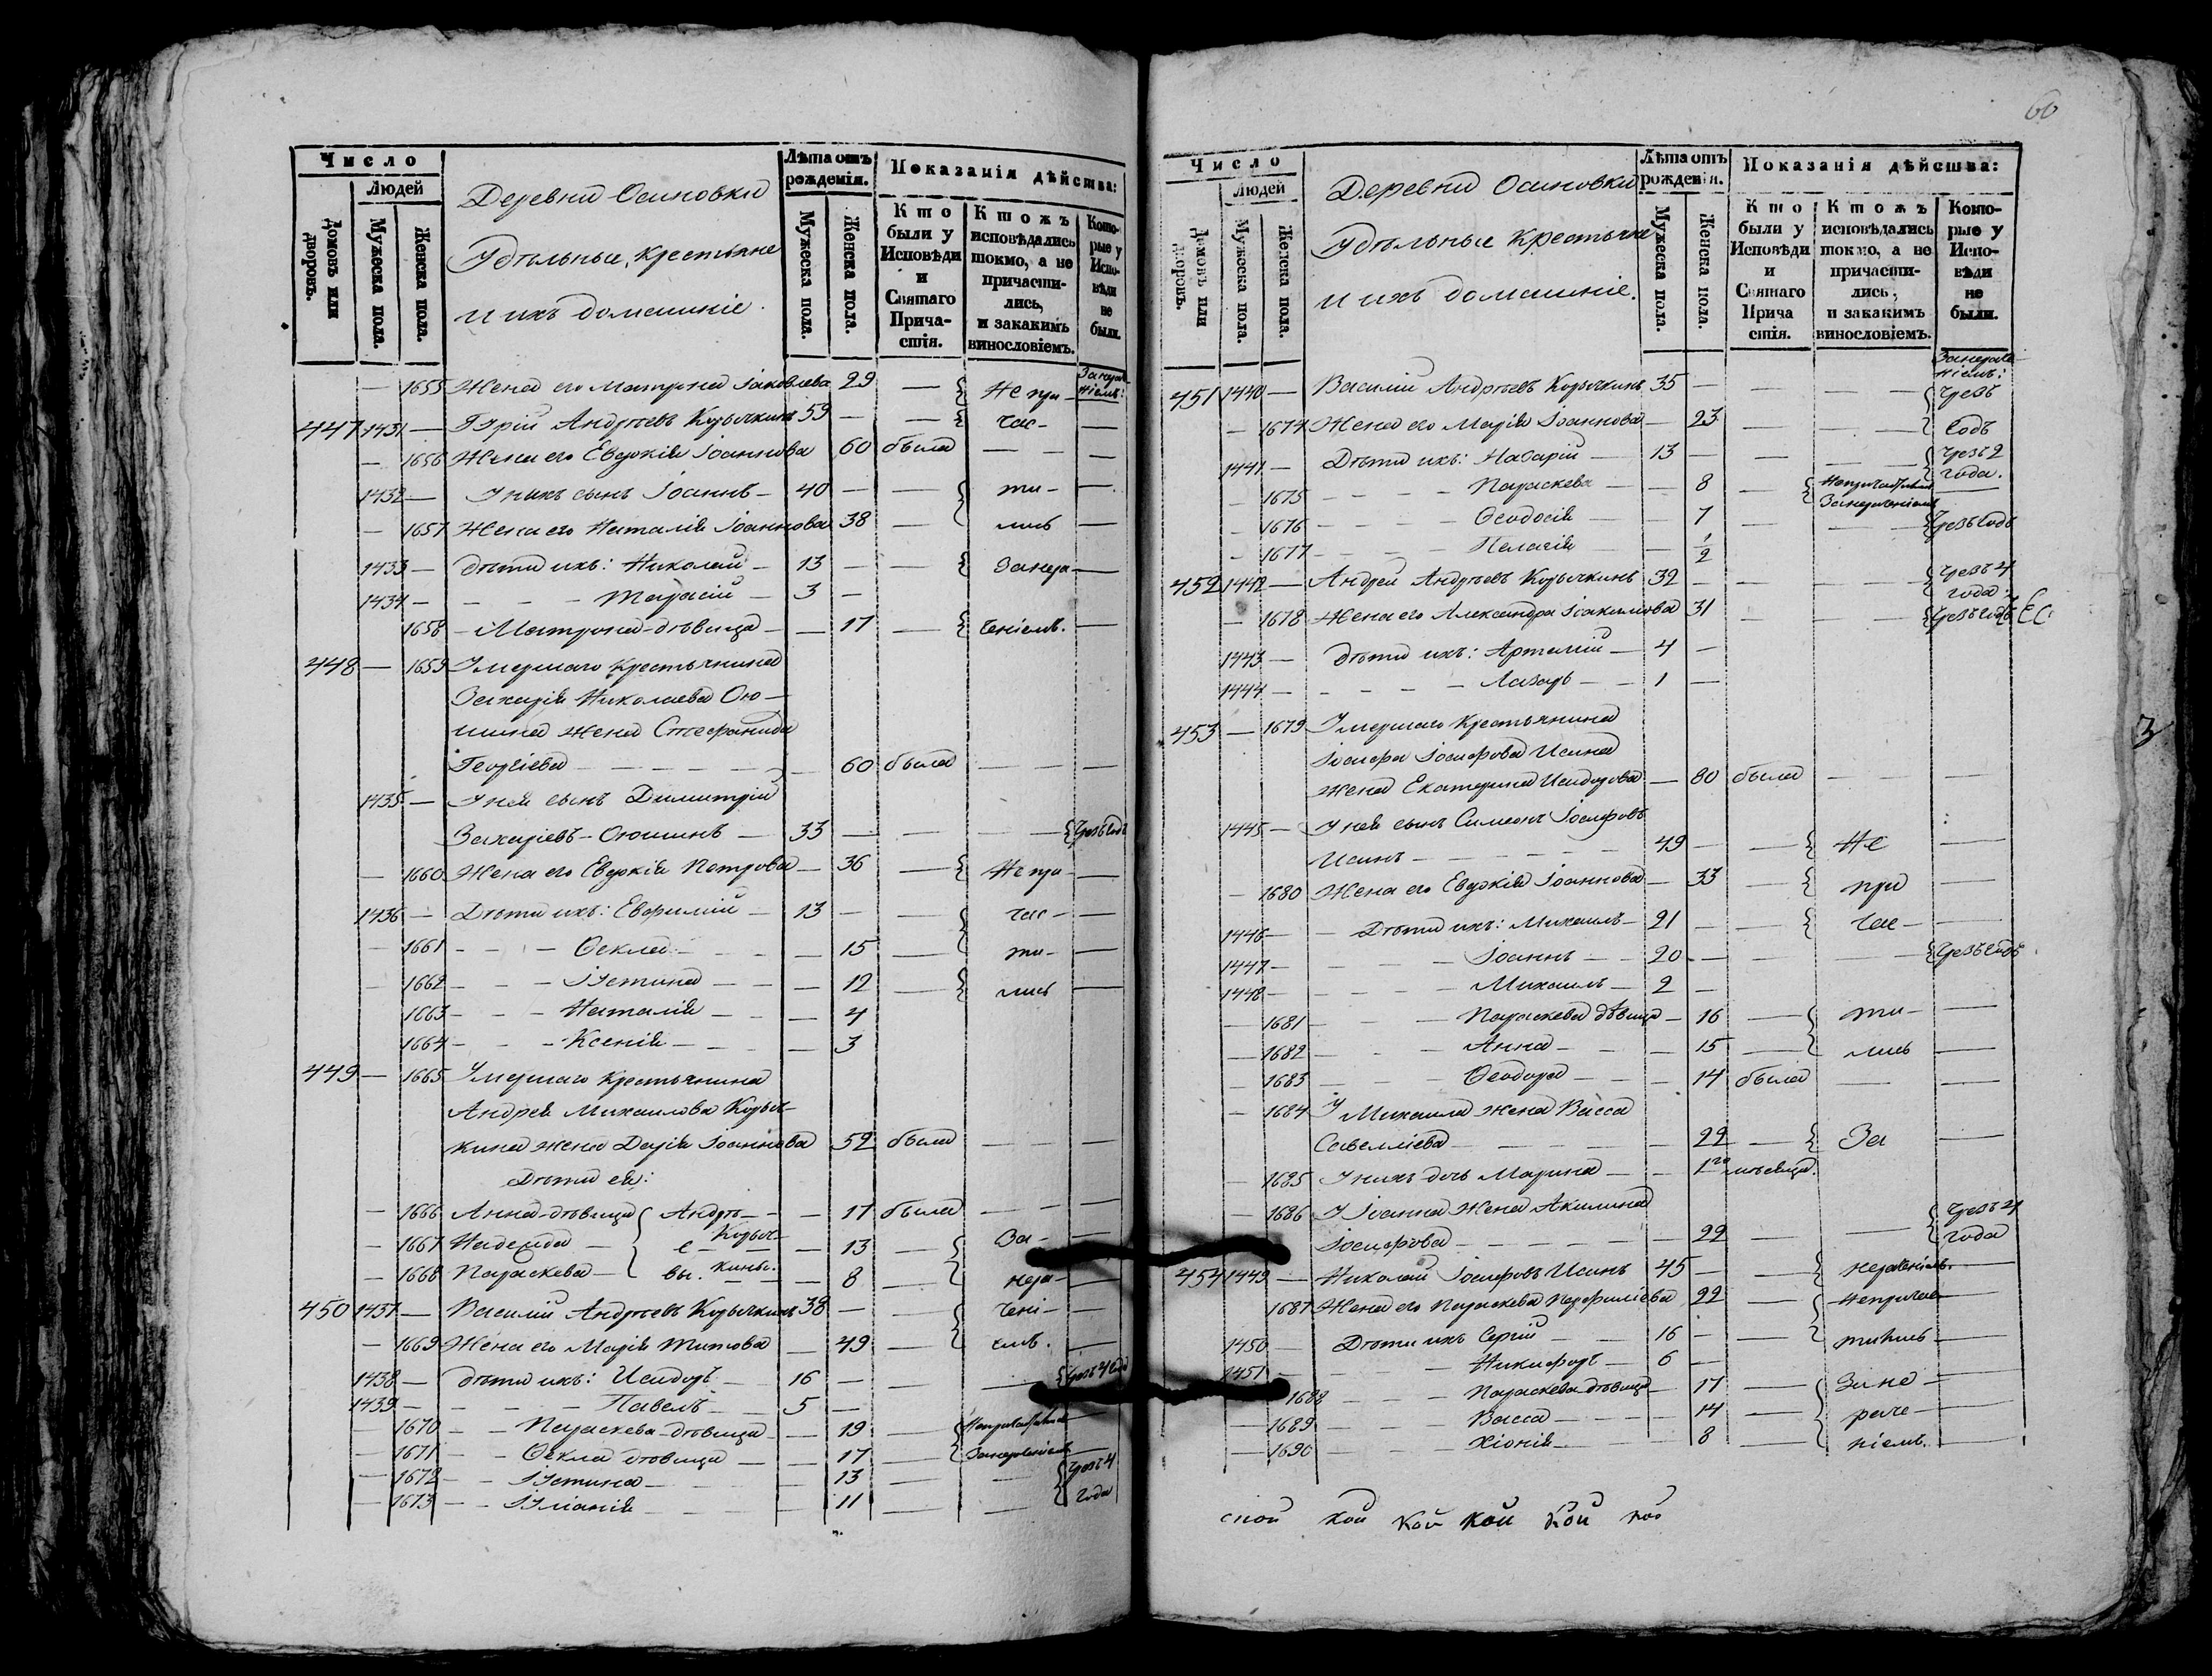 Число
Людей
Домовъ или дворовъ.
Мужеска пола.
Женска пола.
Деревни Осиновки
Удѣльные крестьяне
и ихъ домашніе.
Лѣта отъ рожденія.
Мужеска пола.
Женска пола.
Показанія дѣйства:
Кто были у Исповѣди и Святаго Причастія.
Ктожъ исповѣдались токмо, а не причастились, и закакимъ винословіемъ.
Которые у Исповѣди не были.
— 1655 Жена его Матрона Іаковлева 29 — Не при-
447 1431 — Андреевъ 59 — — час- —
— 1656 Жена его Евдокія Іоаннова 60 была — —
1432 — У нихъ сынъ Іоаннъ — 40 — — ти- —
— 1657 Жена его Наталія Іоаннова 38 — лись —
1433 — Дѣти ихъ: Николай — 13 — — Занера- —
1434 — — — Тарасій — 3 —
1658 — Матрона дѣвица — — 17 — ченіемъ. —
448 — 1659 Умершаго крестьянина
Захарія Николаева Ою-
шина жена Стефанида
Георгіева — — — 60 была — — —
1435 — У ней сынъ Димитрій
Захаріевъ Оюшинъ — 33 — — — Чрезъ годъ
— 1660 Жена его Евдокія Петрова — 36 — Не при- —
1436 — Дѣти ихъ: Евфимій — 13 — — час- —
— 1661 — — Ѳекла — — 15 — ти- —
— 1662 — — Іустина — — 12 — лись —
1663 — — Наталія — — 4
1664 — — Ксенія — — 3
449 — 1665 Умершаго крестьянина
Андрея Михаилова Козыч-
кина жена Дарія Іоаннова 52 была — — —
Дѣти ея:
— 1666 Анна дѣвица Андре- — 17 была — — —
— 1667 Надежда — е- Козыч- — 13 — За- —
— 1668 Параскева — вы. кины. — 8 — нера- —
450 1437 — Василій Андреевъ Козычкинъ 38 — — чені- —
— 1669 Жена его Марія Титова — 49 — емъ. —
1438 — Дѣти ихъ: Исидоръ — 16 — — Чрезъ 4 года
1439 — — — Павелъ — 5 —
— 1670 — — Параскева дѣвица — 19 —
— 1671 — — Ѳекла дѣвица — 17 — Занераченіемъ —
— 1672 — — Іустина — — 13 — — Чрезъ 4
— 1673 — — Іуліанія — — 11 — — года
60
Число
Людей
Домовъ или дворовъ.
Мужеска пола.
Женска пола.
Деревни Осиновки
Удѣльные крестьяне
и ихъ домашніе.
Лѣта отъ рожденія.
Мужеска пола.
Женска пола.
Показанія дѣйства:
Кто были у Исповѣди и Святаго Причастія.
Ктожъ исповѣдались токмо, а не причастились, и закакимъ винословіемъ.
Которые у Исповѣди не были.
Занераче-
ніемъ:
451 1440 — Василій Андреевъ Козычкинъ 35 — — — Чрезъ
— 1674 Жена его Марія Іоаннова — 23 — — годъ
1441 — Дѣти ихъ: Назарій — 13 — — — Чрезъ 2 года.
— 1675 — — — Параскева — 8 — Непричастилась Занераченіемъ —
— 1676 — — — Ѳеодосія — 7 — — Чрезъ годъ
— 1677 — — — Пелагія — 1/2
452 1442 — Андрей Андреевъ Козычкинъ 32 — — — Чрезъ 4 года
— 1678 Жена его Александра Іоакимова 31 — — Чрезъ годъ
1443 — Дѣти ихъ: Артемій — 4 —
1444 — — — — Лазарь — 1 —
453 — 1679 Умершаго крестьянина
Іосифа Іосифова Исина
жена Екатерина Исидорова — 80 была — —
1445 — У ней сынъ Симеонъ Іосифовъ
Исинъ — — — 49 — — Не —
— 1680 Жена его Евдокія Іоаннова — 33 — при —
1446 — Дѣти ихъ: Михаилъ — 21 — — час- —
1447 — — — Іоаннъ — 20 — — — Чрезъ годъ
1448 — — — Михаилъ — 2 —
— 1681 — — Параскева дѣвица — 16 — ти- —
— 1682 — — Анна — — 15 — лись —
— 1683 — — Ѳеодора — — 14 была — —
— 1684 У Михаила жена Васса
Савелліева — — — 22 — За —
— 1685 У нихъ дочь Марина — — 1го мѣсяца.
— 1686 У Іоанна жена Акилина
Іосифова — — — 22 — — Чрезъ 4 года
454 1449 — Николай Іосифовъ Исинъ 45 — — нераченіемъ. —
1687 Жена его Параскева Перфиліева 22 — Непричас- —
1450 — Дѣти ихъ Сергій — 16 — — тились —
1451 — — Никифоръ — 6 —
1688 — — Параскева дѣвица — 17 — Зане- —
— 1689 — — Васса — — 14 — раче- —
— 1690 — — Хіонія — — 8 — ніемъ. —
кой кой кой кой